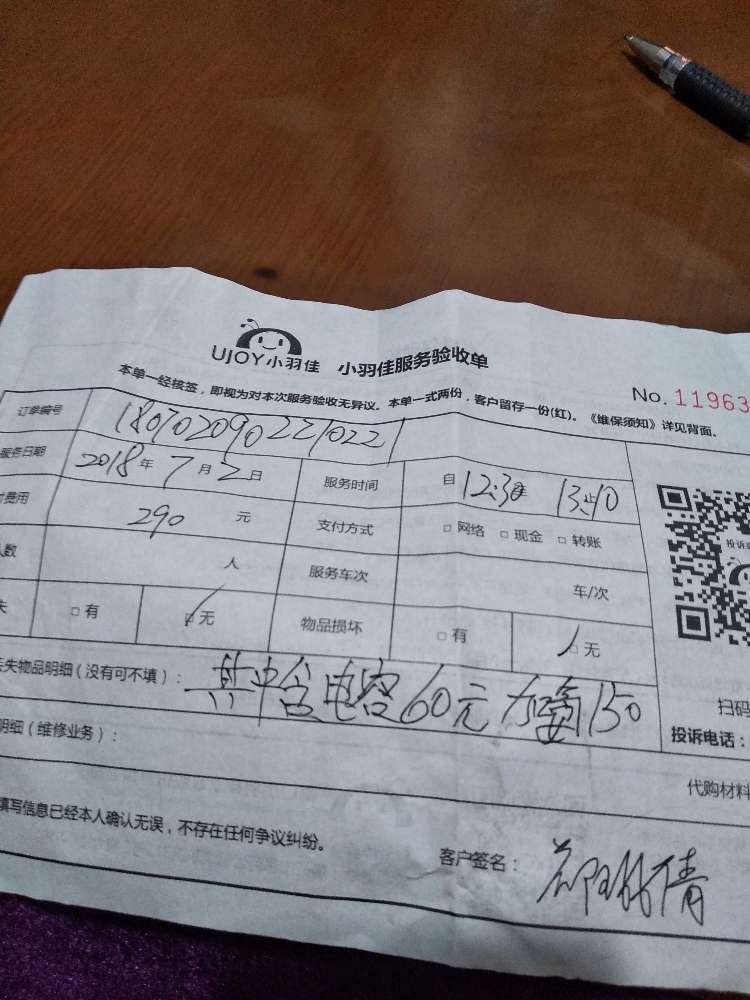 UJOY小羽佳 小羽佳服务验收单
No. 11963
本单一经核签，即视为对本次服务验收无异议。本单一式两份，客户留存一份(红)。《维保须知》详见背面。
订单编号 180702090221022
服务日期 2018年7月2日 服务时间 自12:30 止13:40
费用 290元 支付方式 □网络 □现金 □转账
人数 人 服务车次 车/次
失 □有 □无 物品损坏 □有 □无
丢失物品明细（没有可不填）： 其中含电容60元 加氟150
明细（维修业务）：
代购材料
填写信息已经本人确认无误，不存在任何争议纠纷。
客户签名：
投诉
扫码
投诉电话：